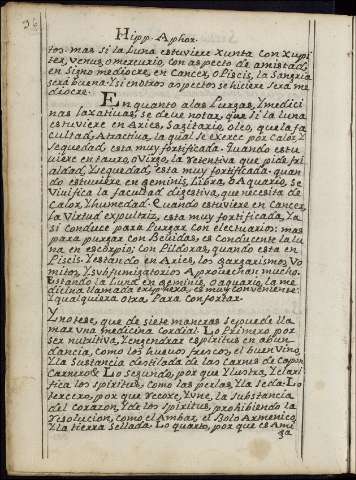 36
Hipp. Aphor.
tos. mas si la Luna estuviere Xunta con Xupi
ter, Venus, o mercurio, con aspecto de amistad,
en signo mediocre, en Cancer, o Piscis, la Sangria
será buena. Y si en otros aspectos se hiciere será me
diocre.
En quanto a las Purgas, Y medici
nas laxativas, se deve notar, que si la luna
estuviere en Aries, Sagitario, o leo, que la fa
cultad, Atractiva, la qual se exerce por Calor, Y
sequedad, esta muy fortificada. Quando estu
viere en tauro, o Virgo, la retentiva que pide fri
aldad, Y sequedad, esta muy fortificada. quan
do estuviere en geminis, Libra, o Aquario, se
Vivifica la facultad digestiva, que necesita de
Calor, Y humedad. Quando estuviere en Cancer,
la Virtud expultriz, esta muy fortificada, Y a
si conduce para Purgar con electuarios: mas
para purgar con Bevidas, es conducente la lu
na en escorpio: con Pildoras, quando esta en
Piscis. Y estando en Aries, los gargarismos, Vo
mitos, Y subfumigatorios Aprovechan mucho.
Estando la luna en geminis, o aquario, la me
dicina llamada es muy conveniente:
Y qualquiera otra Para Confortar.
Y notese, que de siete maneras se puede lla
mar una medicina cordial. Lo Primero por
ser nutritiva, Y engendrar espiritus en abun
dancia, como los huevos frescos, el buen Vino,
Y la Sustancia distilada de las Carnes de Capon
Carnero & Lo segundo, por que Ylustra, Y clari
fica los spiritus, como las perlas, Y la seda. Lo
tercero, por que recoxe, Y une, la substancia
del corazon, Y de los spiritus, prohibiendo la
resolucion, como el Ambar, el Bolo Armenico,
Y la tierra sellada. Lo quarto, por que es Ami
ga